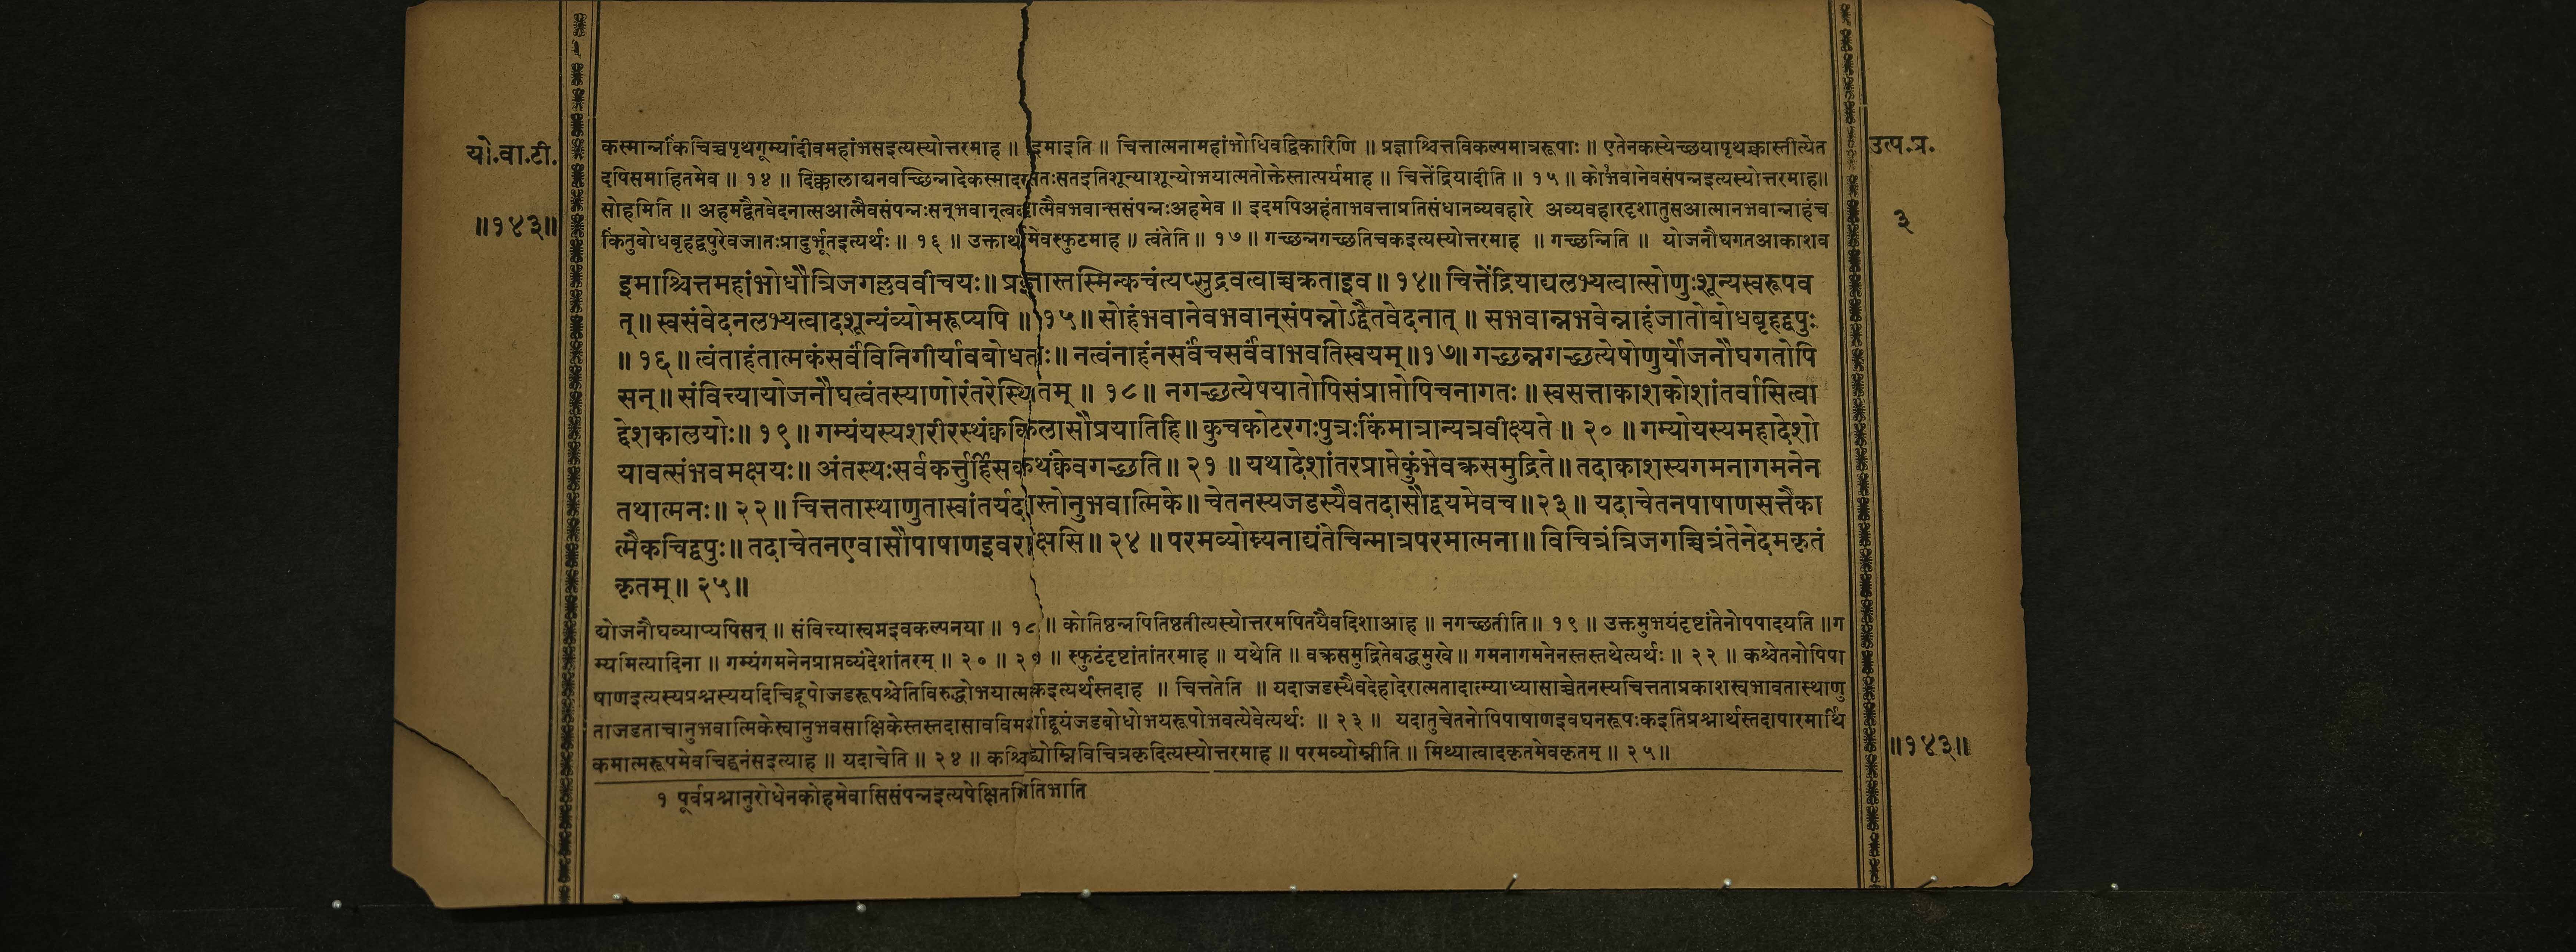 यो.वा.टी.
॥१४३॥
उत्प.प्र.
३
कस्मान्नकिंचिच्चपृथगूर्म्यादीवमहांभसइत्यस्योत्तरमाह ॥ इमाइति ॥ चित्तात्मनामहांभोधिवद्विकारिणि ॥ प्रज्ञाश्चित्तविकल्पमात्ररूपाः ॥ एतेनकस्येच्छयापृथक्कास्तीत्येत
दपिसमाहितमेव ॥ १४ ॥ दिक्कालाद्यनवच्छिन्नादेकस्मादसतःसतइतिशून्याशून्योभयात्मतोक्तेस्तात्पर्यमाह ॥ चित्तेंद्रियादीति ॥ १५ ॥ कोभवानेवसंपन्नइत्यस्योत्तरमाह॥
सोहमिति ॥ अहमद्वैतवेदनात्सआत्मैवसंपन्नःसन्भवान्त्वदात्मैवभवान्ससंपन्नःअहमेव ॥ इदमपिअहंताभवत्ताप्रतिसंधानव्यवहारे अव्यवहारदृशातुसआत्मानभवान्नाहंच
किंतुबोधबृहद्वपुरेवजातःप्रादुर्भूतइत्यर्थः ॥ १६ ॥ उक्तार्थमेवस्फुटमाह ॥ त्वंतेति ॥ १७ ॥ गच्छन्नगच्छतिचकइत्यस्योत्तरमाह ॥ गच्छन्निति ॥ योजनौघगतआकाशव
इमाश्चित्तमहांभोधौत्रिजगल्लववीचयः॥ प्रज्ञास्तस्मिन्कचंत्यप्सुद्रवत्वाच्चक्रताइव ॥ १४॥ चित्तेंद्रियाद्यलभ्यत्वात्सोणुःशून्यस्वरूपव
त् ॥ स्वसंवेदनलभ्यत्वादशून्यंव्योमरूप्यपि ॥ १५॥ सोहंभवानेवभवान्संपन्नोऽद्वैतवेदनात् ॥ सभवान्नभवेन्नाहंजातोबोधबृहद्वपुः
॥ १६ ॥ त्वंताहंतात्मकंसर्वंविनिगीर्यावबोधतः॥ नत्वंनाहंनसर्वंचसर्वंवाभवतिस्वयम् ॥१७॥ गच्छन्नगच्छत्येषोणुर्योजनौघगतोपि
सन् ॥ संवित्त्यायोजनौघत्वंतस्याणोरंतरेस्थितम् ॥ १८ ॥ नगच्छत्येषयातोपिसंप्राप्तोपिचनागतः ॥ स्वसत्ताकाशकोशांतर्वासित्वा
द्देशकालयोः॥ १९ ॥ गम्यंयस्यशरीरस्थंक्वकिलासौप्रयातिहि॥ कुचकोटरगःपुत्रःकिंमात्रान्यत्रवीक्ष्यते ॥ २० ॥ गम्योयस्यमहादेशो
यावत्संभवमक्षयः॥ अंतस्थःसर्वकर्त्तुर्हिसकथंक्वेवगच्छति॥ २१ ॥ यथादेशांतरप्राप्तेकुंभेवक्रसमुद्रिते॥ तदाकाशस्यगमनागमनेन
तथात्मनः॥ २२ ॥ चित्ततास्थाणुतास्वांतर्यदास्तोनुभवात्मिके॥ चेतनस्यजडस्यैवतदासौद्वयमेवच ॥२३॥ यदाचेतनपाषाणसत्तैका
त्मैकचिद्वपुः॥ तदाचेतनएवासौपाषाणइवराक्षसि॥ २४ ॥ परमव्योम्न्यनाद्यंतेचिन्मात्रपरमात्मना॥ विचित्रंत्रिजगच्चित्रंतेनेदमकृतं
कृतम् ॥ २५ ॥
द्योजनौघव्याप्यपिसन् ॥ संवित्त्यास्वप्नइवकल्पनया ॥ १८ ॥ कोतिष्ठन्नपितिष्ठतीत्यस्योत्तरमपितयैवदिशाआह ॥ नगच्छतीति ॥ १९ ॥ उक्तमुभयंदृष्टांतेनोपपादयति ॥ग
म्यमित्यादिना ॥ गम्यंगमनेनप्राप्तव्यंदेशांतरम् ॥ २० ॥ २१ ॥ स्फुटंदृष्टांतांतरमाह ॥ यथेति ॥ वक्रसमुद्रितेबद्धमुखे ॥ गमनागमनेनस्तस्तथेत्यर्थः ॥ २२ ॥ कश्चेतनोपिपा
षाणइत्यस्यप्रश्नस्ययदिचिद्रूपोजडरूपश्चेतिविरुद्धोभयात्मकइत्यर्थस्तदाह ॥ चित्ततेति ॥ यदाजडस्यैवदेहादेरात्मतादात्म्याध्यासाच्चेतनस्यचित्तताप्रकाशस्वभावतास्थाणु
ताजडताचानुभवात्मिकेस्वानुभवसाक्षिकेस्तस्तदासावविमर्शाद्द्वयंजडबोधोभयरूपोभवत्येवेत्यर्थः ॥ २३ ॥ यदातुचेतनोपिपाषाणइवघनरूपःकइतिप्रश्नार्थस्तदापारमार्थि
कमात्मरूपमेवचिद्घनंसइत्याह ॥ यदाचेति ॥ २४ ॥ कश्चिद्व्योम्निविचित्रकृदित्यस्योत्तरमाह ॥ परमव्योम्नीति ॥ मिथ्यात्वादकृतमेवकृतम् ॥ २५॥
॥१४३॥
१ पूर्वप्रश्नानुरोधेनकोहमेवासिसंपन्नइत्यपेक्षितमितिभाति